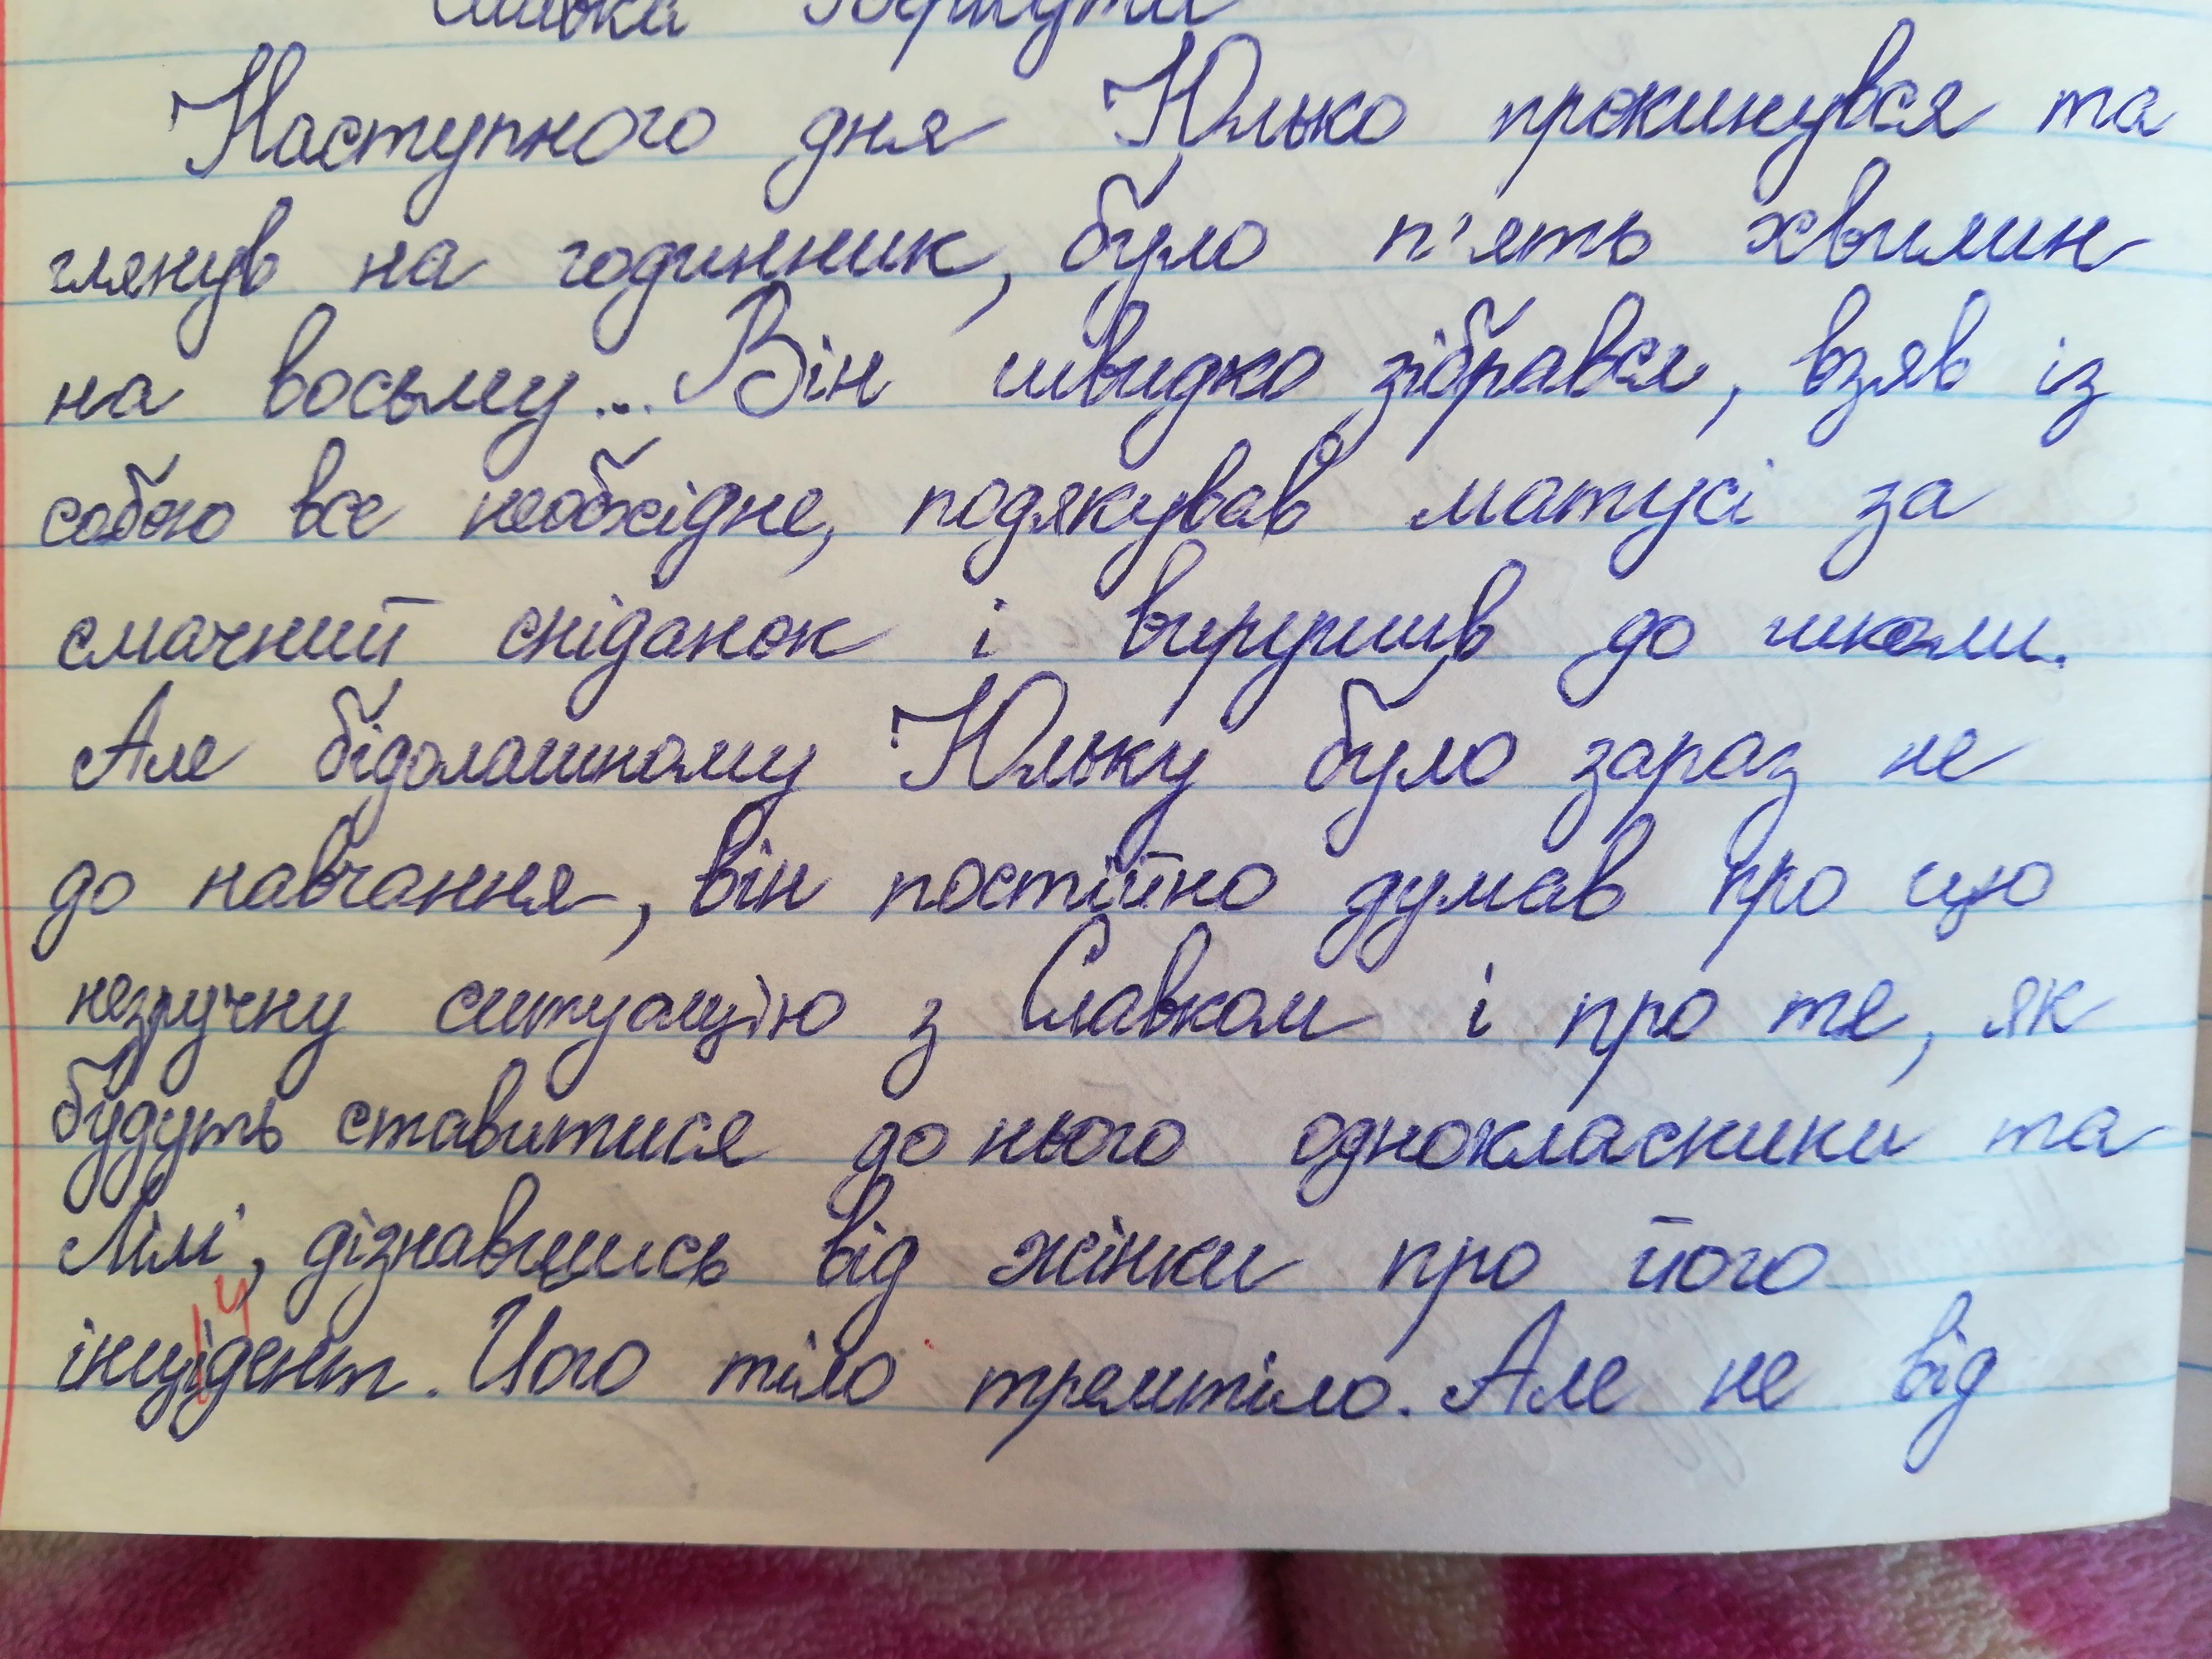 Наступного дня Юлько прокинувся та
глянув на годинник, було п'ять хвилин
на восьму... Він швидко зібрався, взяв із
собою все необхідне, подякував матусі за
смачний сніданок і вирушив до школи.
Але бідолашному Юльку було зараз не
до навчання, він постійно думав про цю
незручну ситуацію з Славком і про те, як
будуть ставитися до нього однокласники та
Лілі, дізнавшись від жінки про його
інціидент. Його тіло тремтіло. Але не від